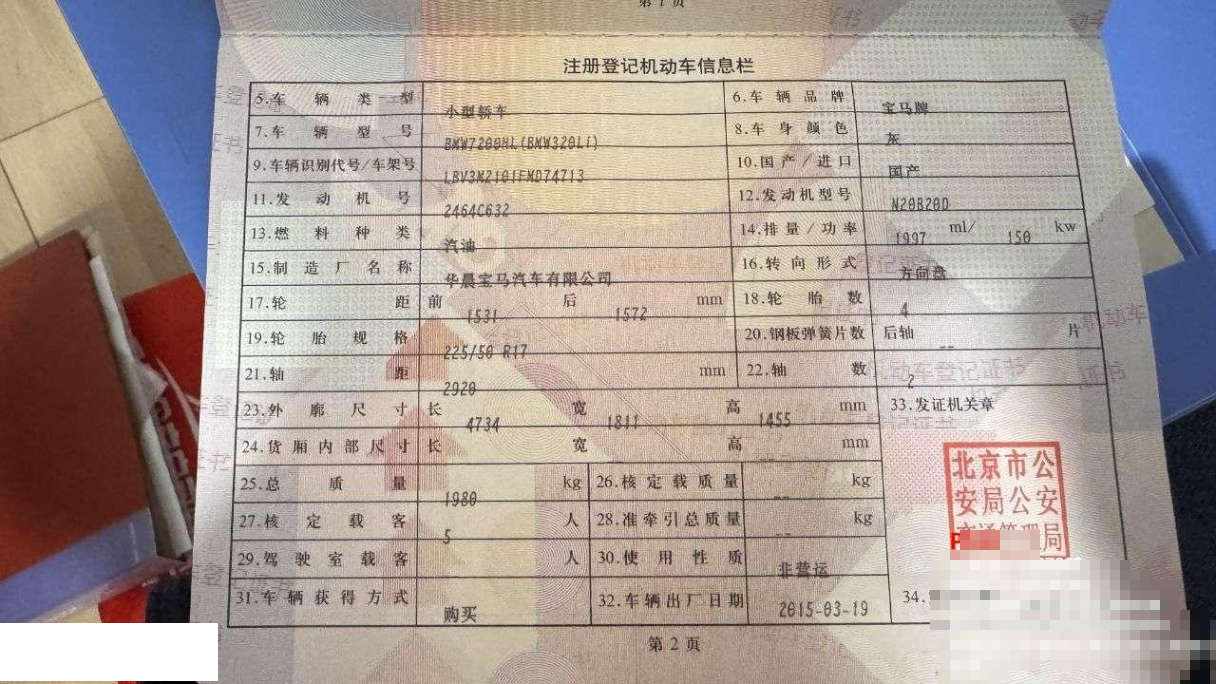 第1页
注册登记机动车信息栏
5.车辆类型 小型轿车 6.车辆品牌 宝马牌
7.车辆型号 BMW7200HL(BMW320Li) 8.车身颜色 灰
9.车辆识别代号/车架号 LBV3M2101FMD74713 10.国产/进口 国产
11.发动机号 2464C632 12.发动机型号 N20B20D
13.燃料种类 汽油 14.排量/功率 1997 ml/ 150 kw
15.制造厂名称 华晨宝马汽车有限公司 16.转向形式 方向盘
17.轮距 前 1531 后 1572 mm 18.轮胎数 4
19.轮胎规格 225/50 R17 20.钢板弹簧片数 后轴 -- 片
21.轴距 2920 mm 22.轴数 2
23.外廓尺寸 长 4734 宽 1811 高 1455 mm 33.发证机关章
24.货厢内部尺寸 长 宽 高 mm
25.总质量 1980 kg 26.核定载质量 -- kg
27.核定载客 5 人 28.准牵引总质量 -- kg
29.驾驶室载客 人 30.使用性质 非营运
31.车辆获得方式 购买 32.车辆出厂日期 2015-03-19 34.
北京市公
安局公安
交通管理局
第2页